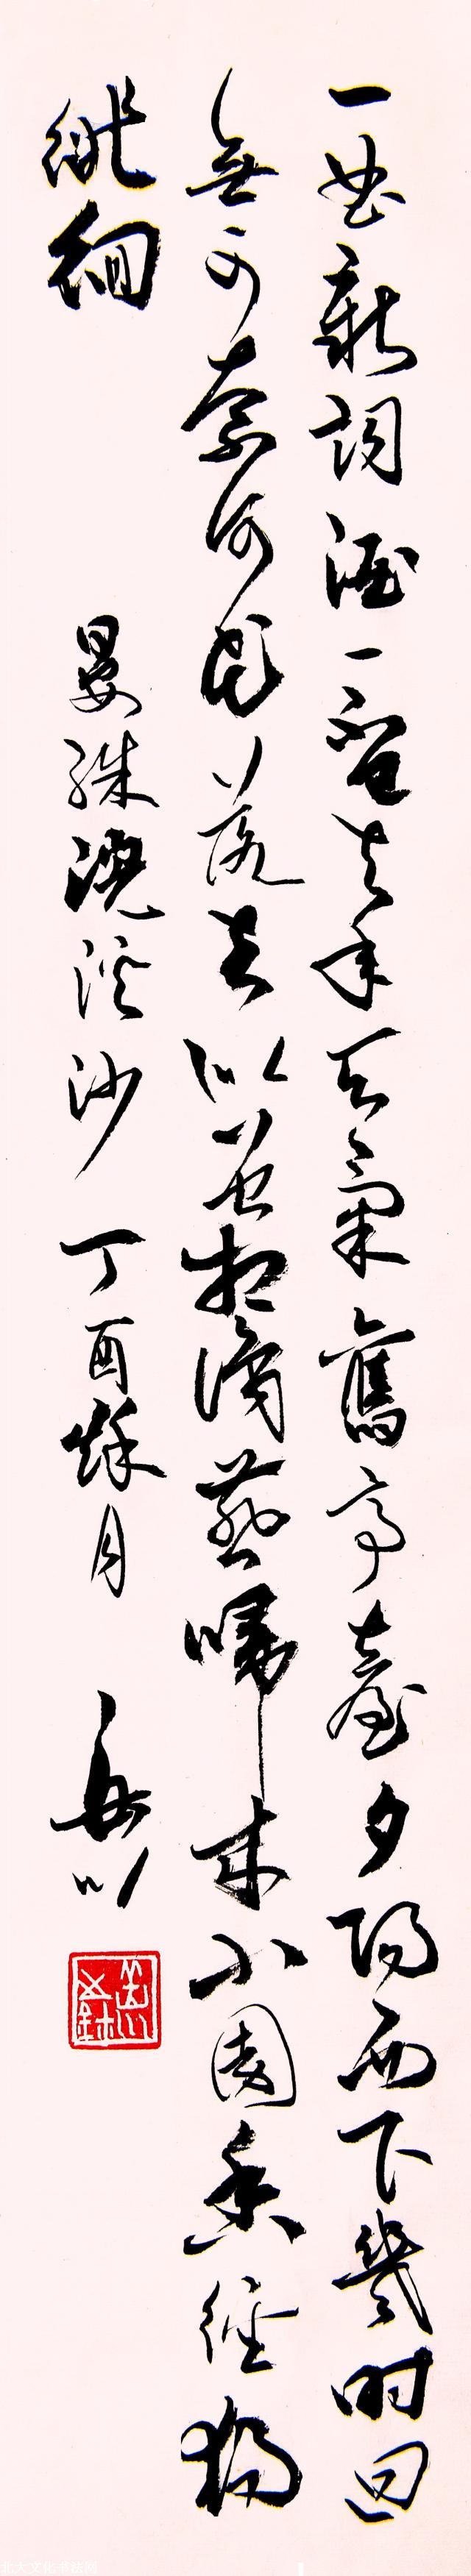 一曲新詞酒一盃去年天氣舊亭臺夕陽西下幾時回
無可奈何花落去似曾相識燕歸來小園香徑獨
徘徊
晏殊浣溪沙 丁酉秋月